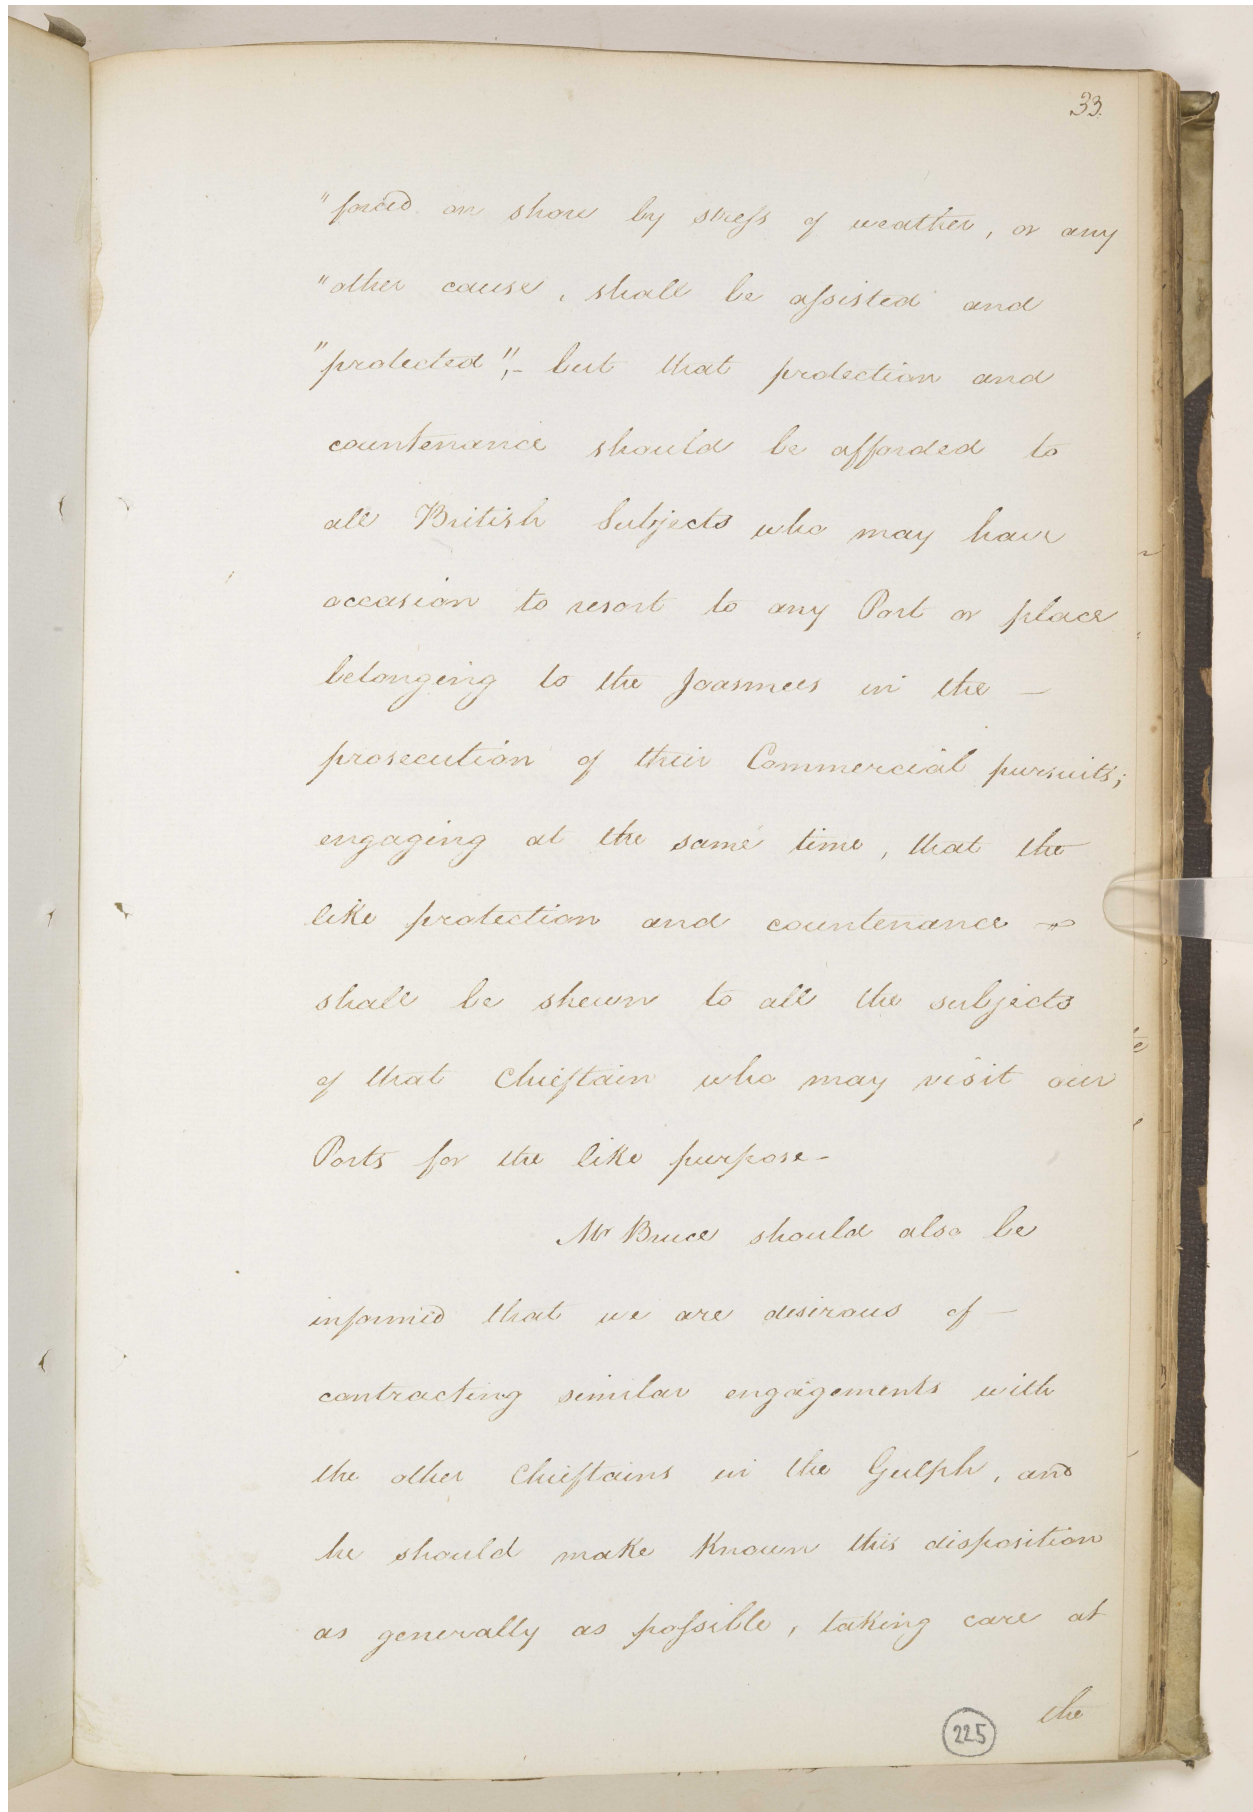 33.
"forced on shore by stress of weather, or any
"other cause, shall be assisted and
"protected",- but that protection and
countenance should be afforded to
all British Subjects who may have
occasion to resort to any Port or place
belonging to the Joasmees in the -
prosecution of their Commercial pursuits;
engaging at the same time, that the
like protection and countenance
shall be shewn to all the subjects
of that Chieftain who may visit our
Ports for the like purpose-
Mr Bruce should also be
informed that we are desirous of -
contracting similar engagements with
the other Chieftains in the Gulph, and
he should make known this disposition
as generally as possible, taking care at
the
225